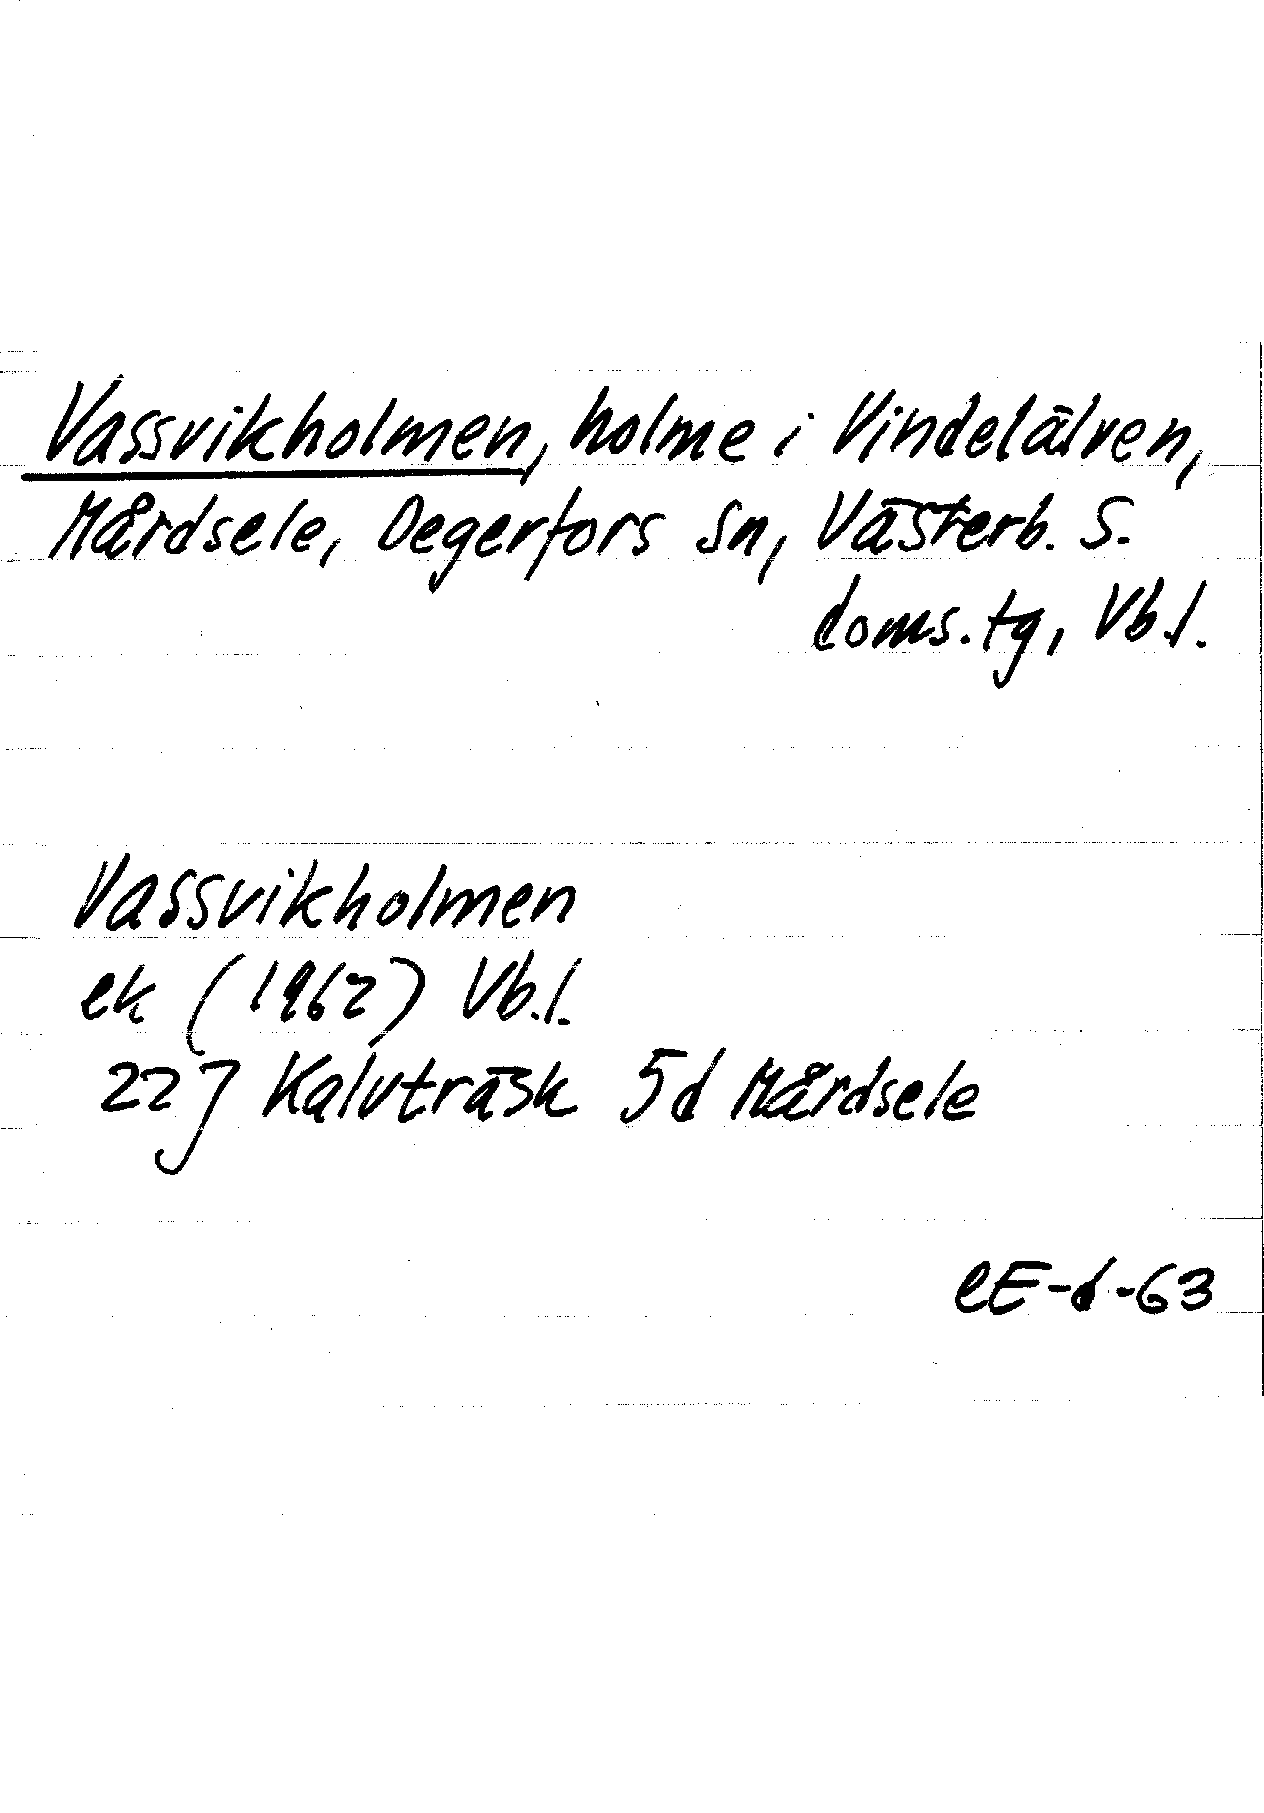 Vassvikholmen, holme i Vindelälven,
Mårdsele, Degerfors sn, Västerb. S.
doms.tg, Vb.l.
Vassvikholmen
ek (1962) Vb.l.
22 J Kalvträsk 5d Mårdsele
CE-d-63